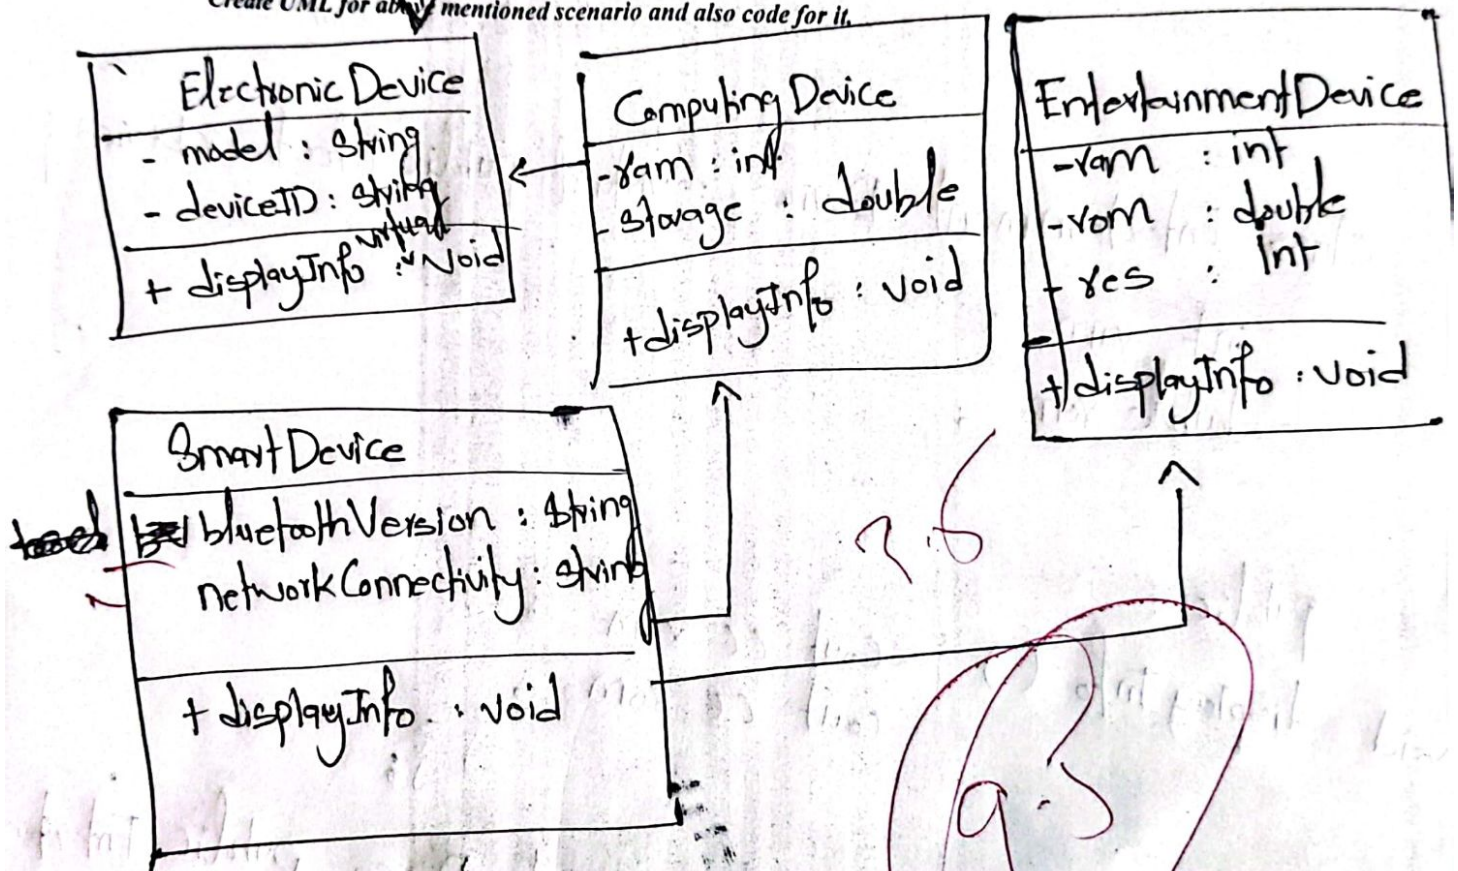 Create UML for above mentioned scenario and also code for it.
ElectronicDevice
- model : String
- deviceID : String
virtual
+ displayInfo : void
Computing Device
- ram : int
- storage : double
+ displayInfo : void
EntertainmentDevice
- ram : int
- rom : double
- res : Int
+ displayInfo : void
SmartDevice
bluetoothVersion : String
networkConnectivity : String
+ displayInfo : void
9.5